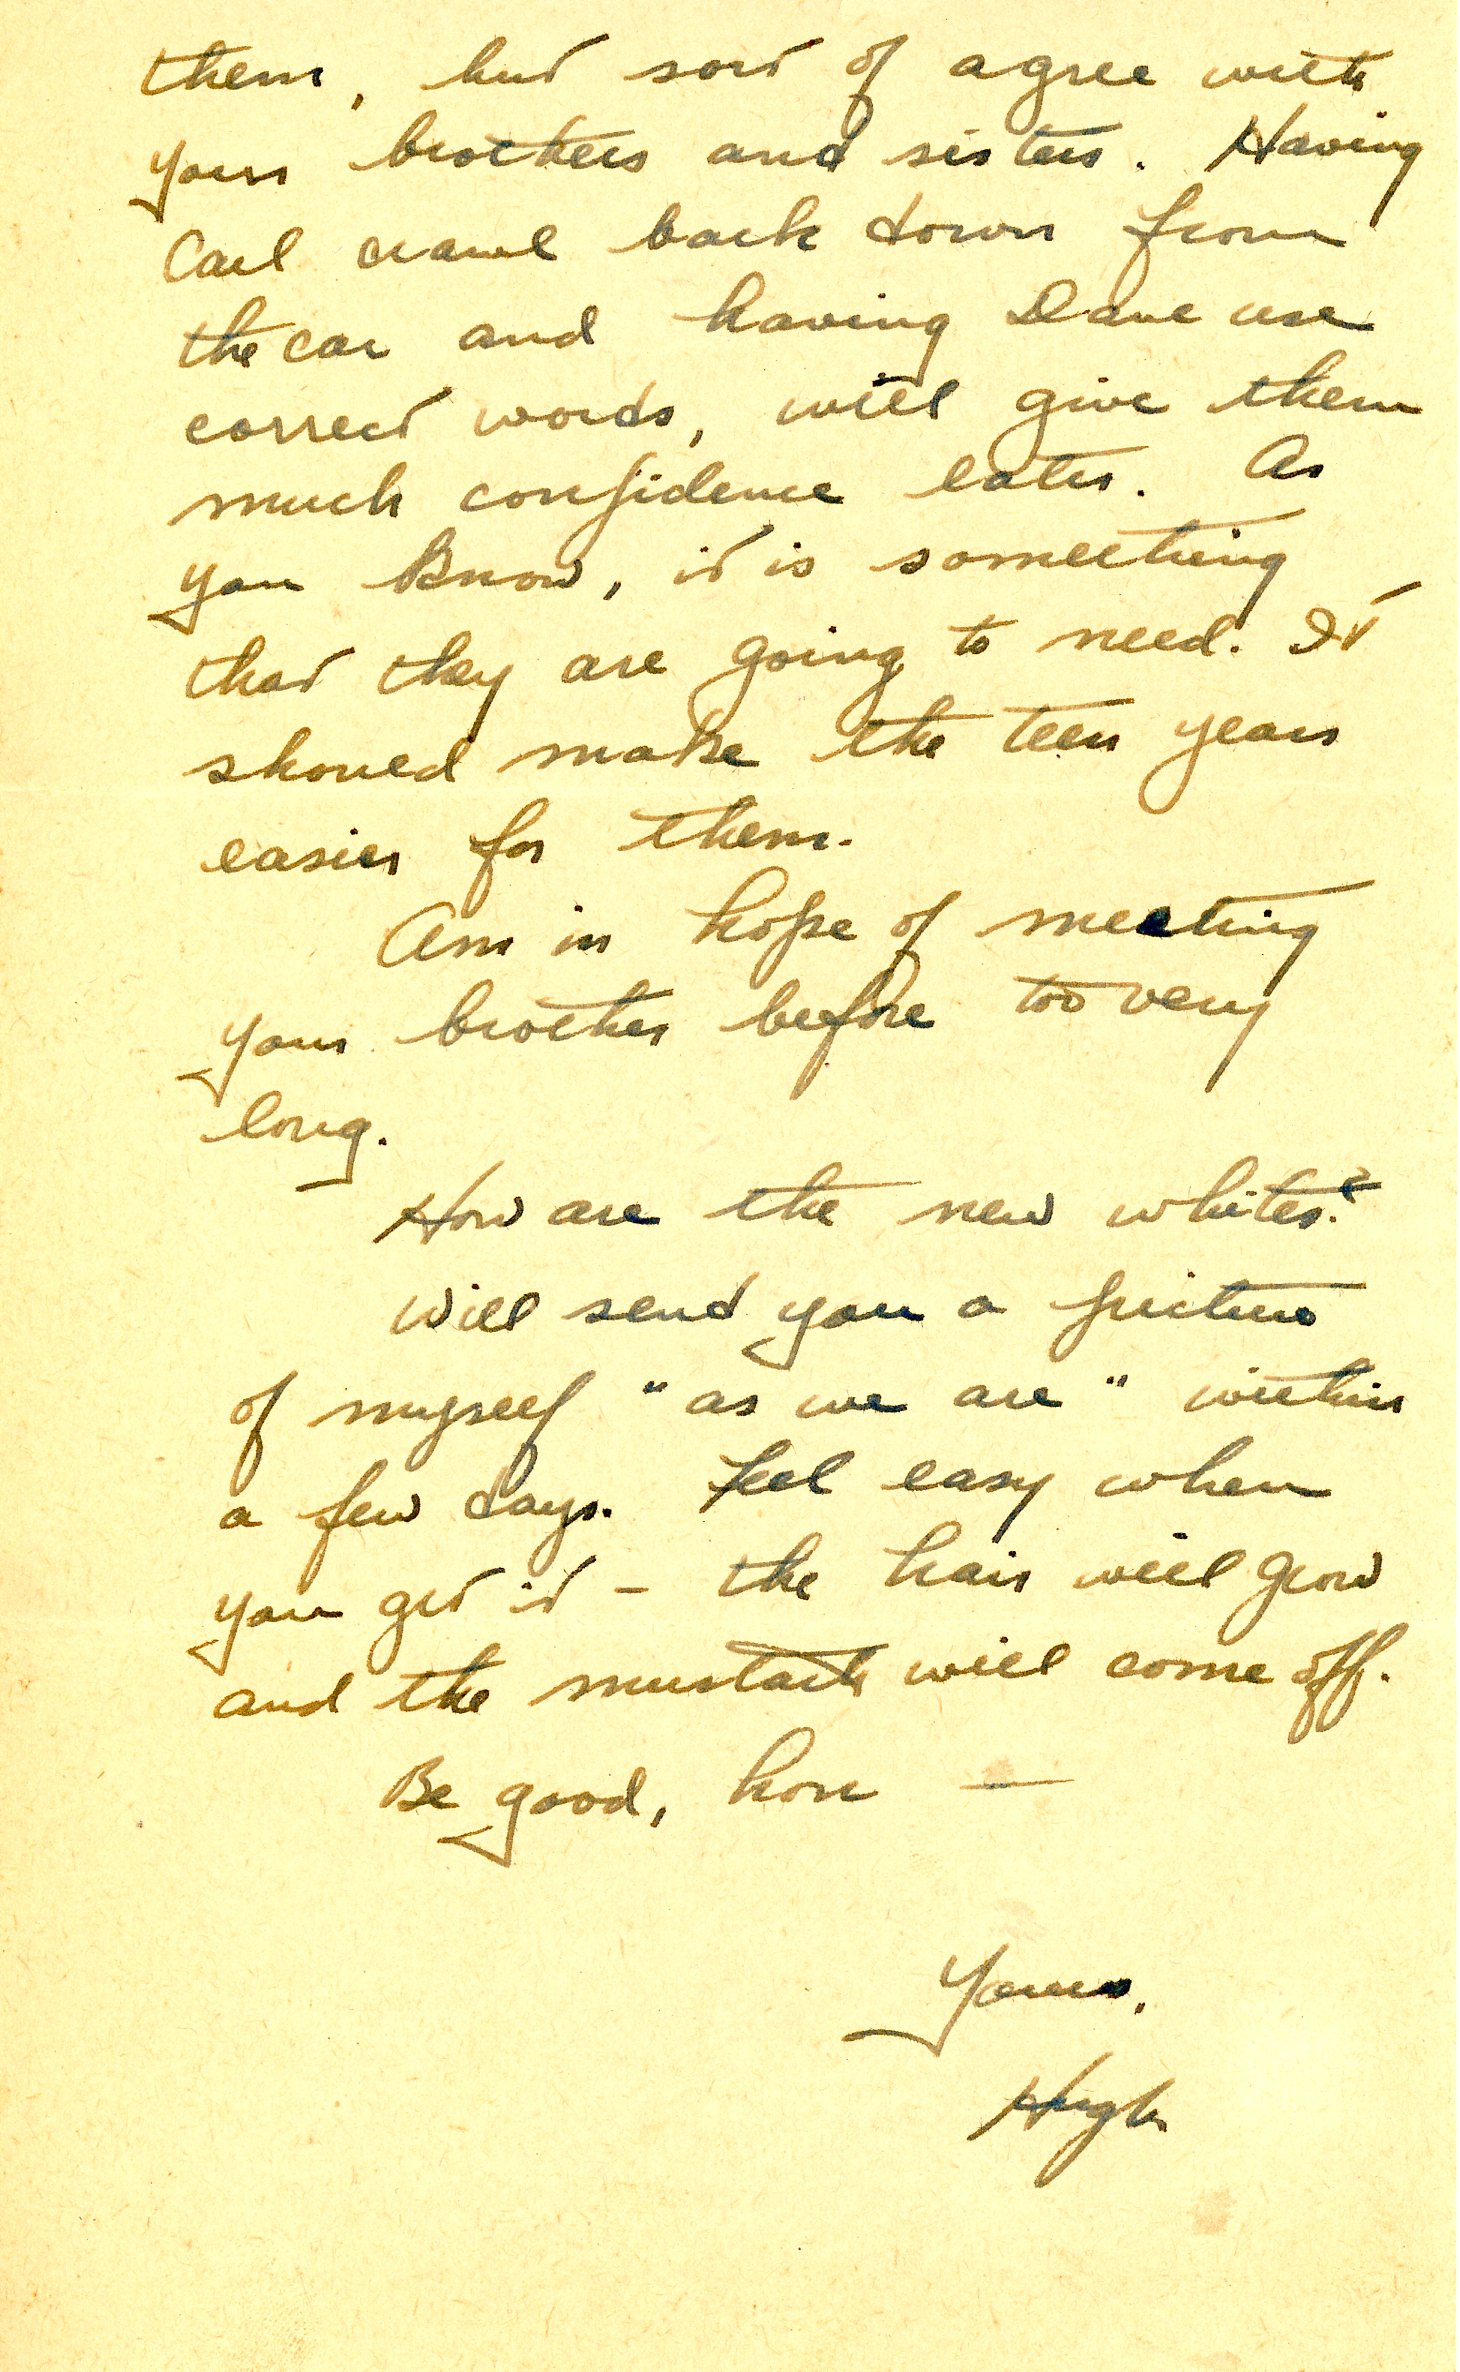 them, but sort of agree with
your brothers and sisters. Having
Carl crawl back down from
the car and having Dave use
correct words, will give them
much confidence later. As
you know, it is something
that they are going to need. It
should make the teen years
easier for them.
Am in hope of meeting
your brother before too very
long.
How are the new whites?
Will send you a picture
of myself "as we are" within
a few days. Feel easy when
you get it – the hair will grow
and the mustach will come off.
Be good, hon —
Yours,
Hugh